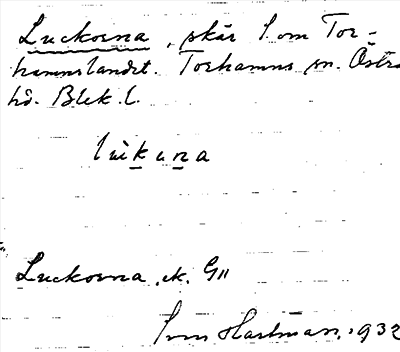 Luckorna, skär S om Tor-
hamnslandet. Torhamns sn. Östra
hd. Blek. l.
Luckorna, ek. G11
Hartman, 1932